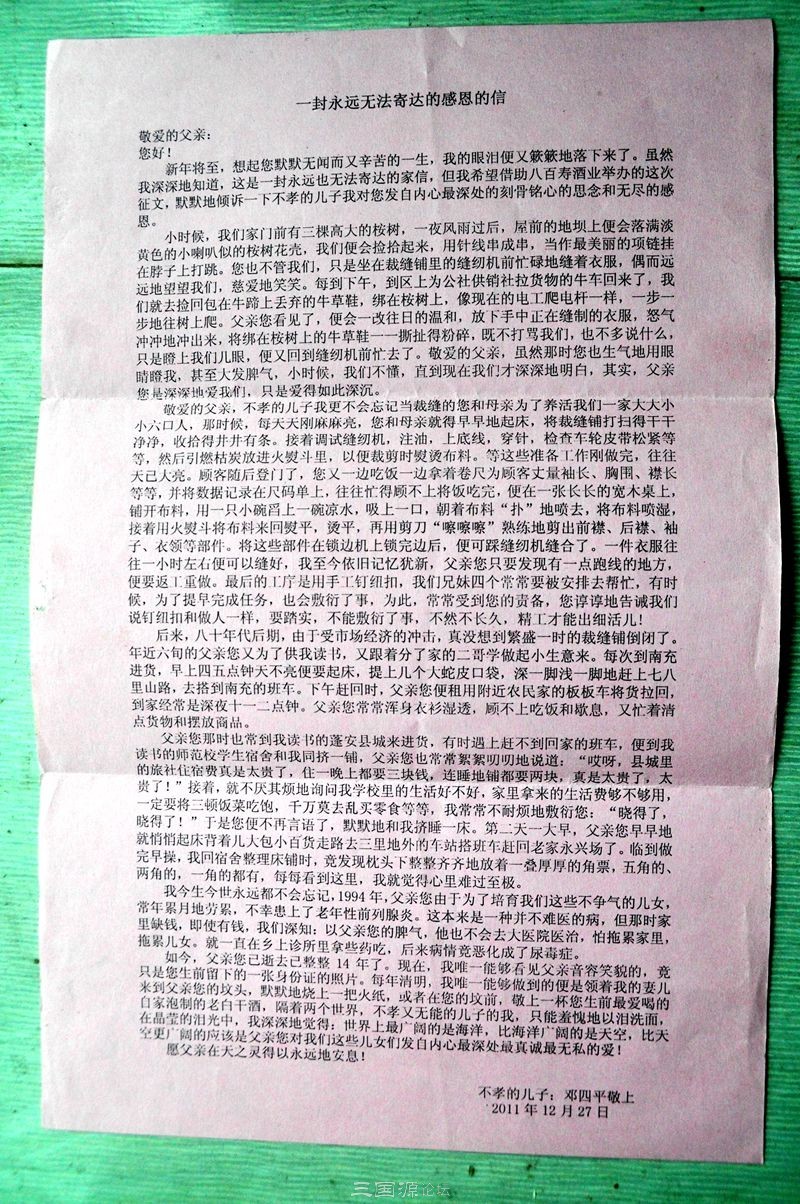 一封永远无法寄达的感恩的信
敬爱的父亲：
您好！
新年将至，想起您默默无闻而又辛苦的一生，我的眼泪便又簌簌地落下来了。虽然
我深深地知道，这是一封永远也无法寄达的家信，但我希望借助八百寿酒业举办的这次
征文，默默地倾诉一下不孝的儿子我对您发自内心最深处的刻骨铭心的思念和无尽的感
恩。
小时候，我们家门前有三棵高大的桉树，一夜风雨过后，屋前的地坝上便会落满淡
黄色的小喇叭似的桉树花壳，我们便会捡拾起来，用针线串成串，当作最美丽的项链挂
在脖子上打跳。您也不管我们，只是坐在裁缝铺里的缝纫机前忙碌地缝着衣服，偶而远
远地望望我们，慈爱地笑笑。每到下午，到区上为公社供销社拉货物的牛车回来了，我
们就去捡回包在牛蹄上丢弃的牛草鞋，绑在桉树上，像现在的电工爬电杆一样，一步一
步地往树上爬。父亲您看见了，便会一改往日的温和，放下手中正在缝制的衣服，怒气
冲冲地冲出来，将绑在桉树上的牛草鞋一一撕扯得粉碎，既不打骂我们，也不多说什么，
只是瞪上我们几眼，便又回到缝纫机前忙去了。敬爱的父亲，虽然那时您也生气地用眼
睛瞪我，甚至大发脾气，小时候，我们不懂，直到现在我们才深深地明白，其实，父亲
您是深深地爱我们，只是爱得如此深沉。
敬爱的父亲，不孝的儿子我更不会忘记当裁缝的您和母亲为了养活我们一家大大小
小六口人，那时候，每天天刚麻麻亮，您和母亲就得早早地起床，将裁缝铺打扫得干干
净净，收拾得井井有条。接着调试缝纫机，注油，上底线，穿针，检查车轮皮带松紧等
等，然后引燃枯炭放进火熨斗里，以便裁剪时熨烫布料。等这些准备工作刚做完，往往
天已大亮。顾客随后登门了，您又一边吃饭一边拿着卷尺为顾客丈量袖长、胸围、襟长
等等，并将数据记录在尺码单上，往往忙得顾不上将饭吃完，便在一张长长的宽木桌上，
铺开布料，用一只小碗舀上一碗凉水，吸上一口，朝着布料“扑”地喷去，将布料喷湿，
接着用火熨斗将布料来回熨平，烫平，再用剪刀“嚓嚓嚓”熟练地剪出前襟、后襟、袖
子、衣领等部件。将这些部件在锁边机上锁完边后，便可踩缝纫机缝合了。一件衣服往
往一小时左右便可以缝好，我至今依旧记忆犹新，父亲您只要发现有一点跑线的地方，
便要返工重做。最后的工序是用手工钉纽扣，我们兄妹四个常常要被安排去帮忙，有时
候，为了提早完成任务，也会敷衍了事，为此，常常受到您的责备，您谆谆地告诫我们
说钉纽扣和做人一样，要踏实，不能敷衍了事，不然不长久，精工才能出细活儿！
后来，八十年代后期，由于受市场经济的冲击，真没想到繁盛一时的裁缝铺倒闭了。
年近六旬的父亲您又为了供我读书，又跟着分了家的二哥学做起小生意来。每次到南充
进货，早上四五点钟天不亮便要起床，提上几个大蛇皮口袋，深一脚浅一脚地赶上七八
里山路，去搭到南充的班车。下午赶回时，父亲您便租用附近农民家的板板车将货拉回，
到家经常是深夜十一二点钟。父亲您常常浑身衣衫湿透，顾不上吃饭和歇息，又忙着清
点货物和摆放商品。
父亲您那时也常到我读书的蓬安县城来进货，有时遇上赶不到回家的班车，便到我
读书的师范校学生宿舍和我同挤一铺，父亲您也常常絮絮叨叨地说道：“哎呀，县城里
的旅社住宿费真是太贵了，住一晚上都要三块钱，连睡地铺都要两块，真是太贵了，太
贵了！”接着，就不厌其烦地询问我学校里的生活好不好，家里拿来的生活费够不够用，
一定要将三顿饭菜吃饱，千万莫去乱买零食等等，我常常不耐烦地敷衍您：“晓得了，
晓得了！”于是您便不再言语了，默默地和我挤睡一床。第二天一大早，父亲您早早地
就悄悄起床背着几大包小百货走路去三里地外的车站搭班车赶回老家永兴场了。临到做
完早操，我回宿舍整理床铺时，竟发现枕头下整整齐齐地放着一叠厚厚的角票，五角的、
两角的，一角的都有，每每看到这里，我就觉得心里难过至极。
我今生今世永远都不会忘记，1994年，父亲您由于为了培育我们这些不争气的儿女，
常年累月地劳累，不幸患上了老年性前列腺炎。这本来是一种并不难医的病，但那时家
里缺钱，即使有钱，我们深知：以父亲您的脾气，他也不会去大医院医治，怕拖累家里，
拖累儿女。就一直在乡上诊所里拿些药吃，后来病情竟恶化成了尿毒症。
如今，父亲您已逝去已整整 14 年了。现在，我唯一能够看见父亲音容笑貌的，竟
只是您生前留下的一张身份证的照片。每年清明，我唯一能够做到的便是领着我的妻儿
来到父亲您的坟头，默默地烧上一把火纸，或者在您的坟前，敬上一杯您生前最爱喝的
自家泡制的老白干酒，隔着两个世界，不孝又无能的儿子的我，只能羞愧地以泪洗面，
在晶莹的泪光中，我深深地觉得：世界上最广阔的是海洋，比海洋广阔的是天空，比天
空更广阔的应该是父亲您对我们这些儿女们发自内心最深处最真诚最无私的爱！
愿父亲在天之灵得以永远地安息！
不孝的儿子：邓四平敬上
2011 年 12 月 27 日
三国源论坛